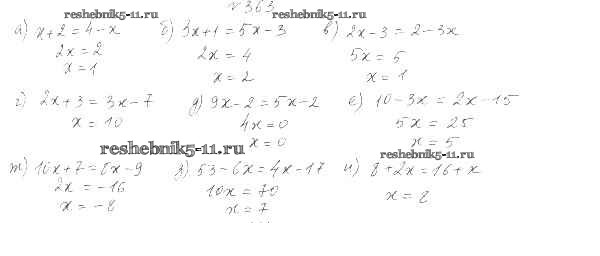 №363
reshebnik5-11.ru reshebnik5-11.ru
а) x+2=4-x б) 3x+1=5x-3 в) 2x-3=2-3x
2x=2 2x=4 5x=5
x=1 x=2 x=1
г) 2x+3=3x-7 д) 9x-2=5x-2 е) 10-3x=2x-15
x=10 4x=0 5x=25
x=0 x=5
reshebnik5-11.ru reshebnik5-11.ru
ж) 10x+7=8x-9 з) 53-6x=4x-17 и) 8+2x=16+x
2x=-16 10x=70 x=8
x=-8 x=7